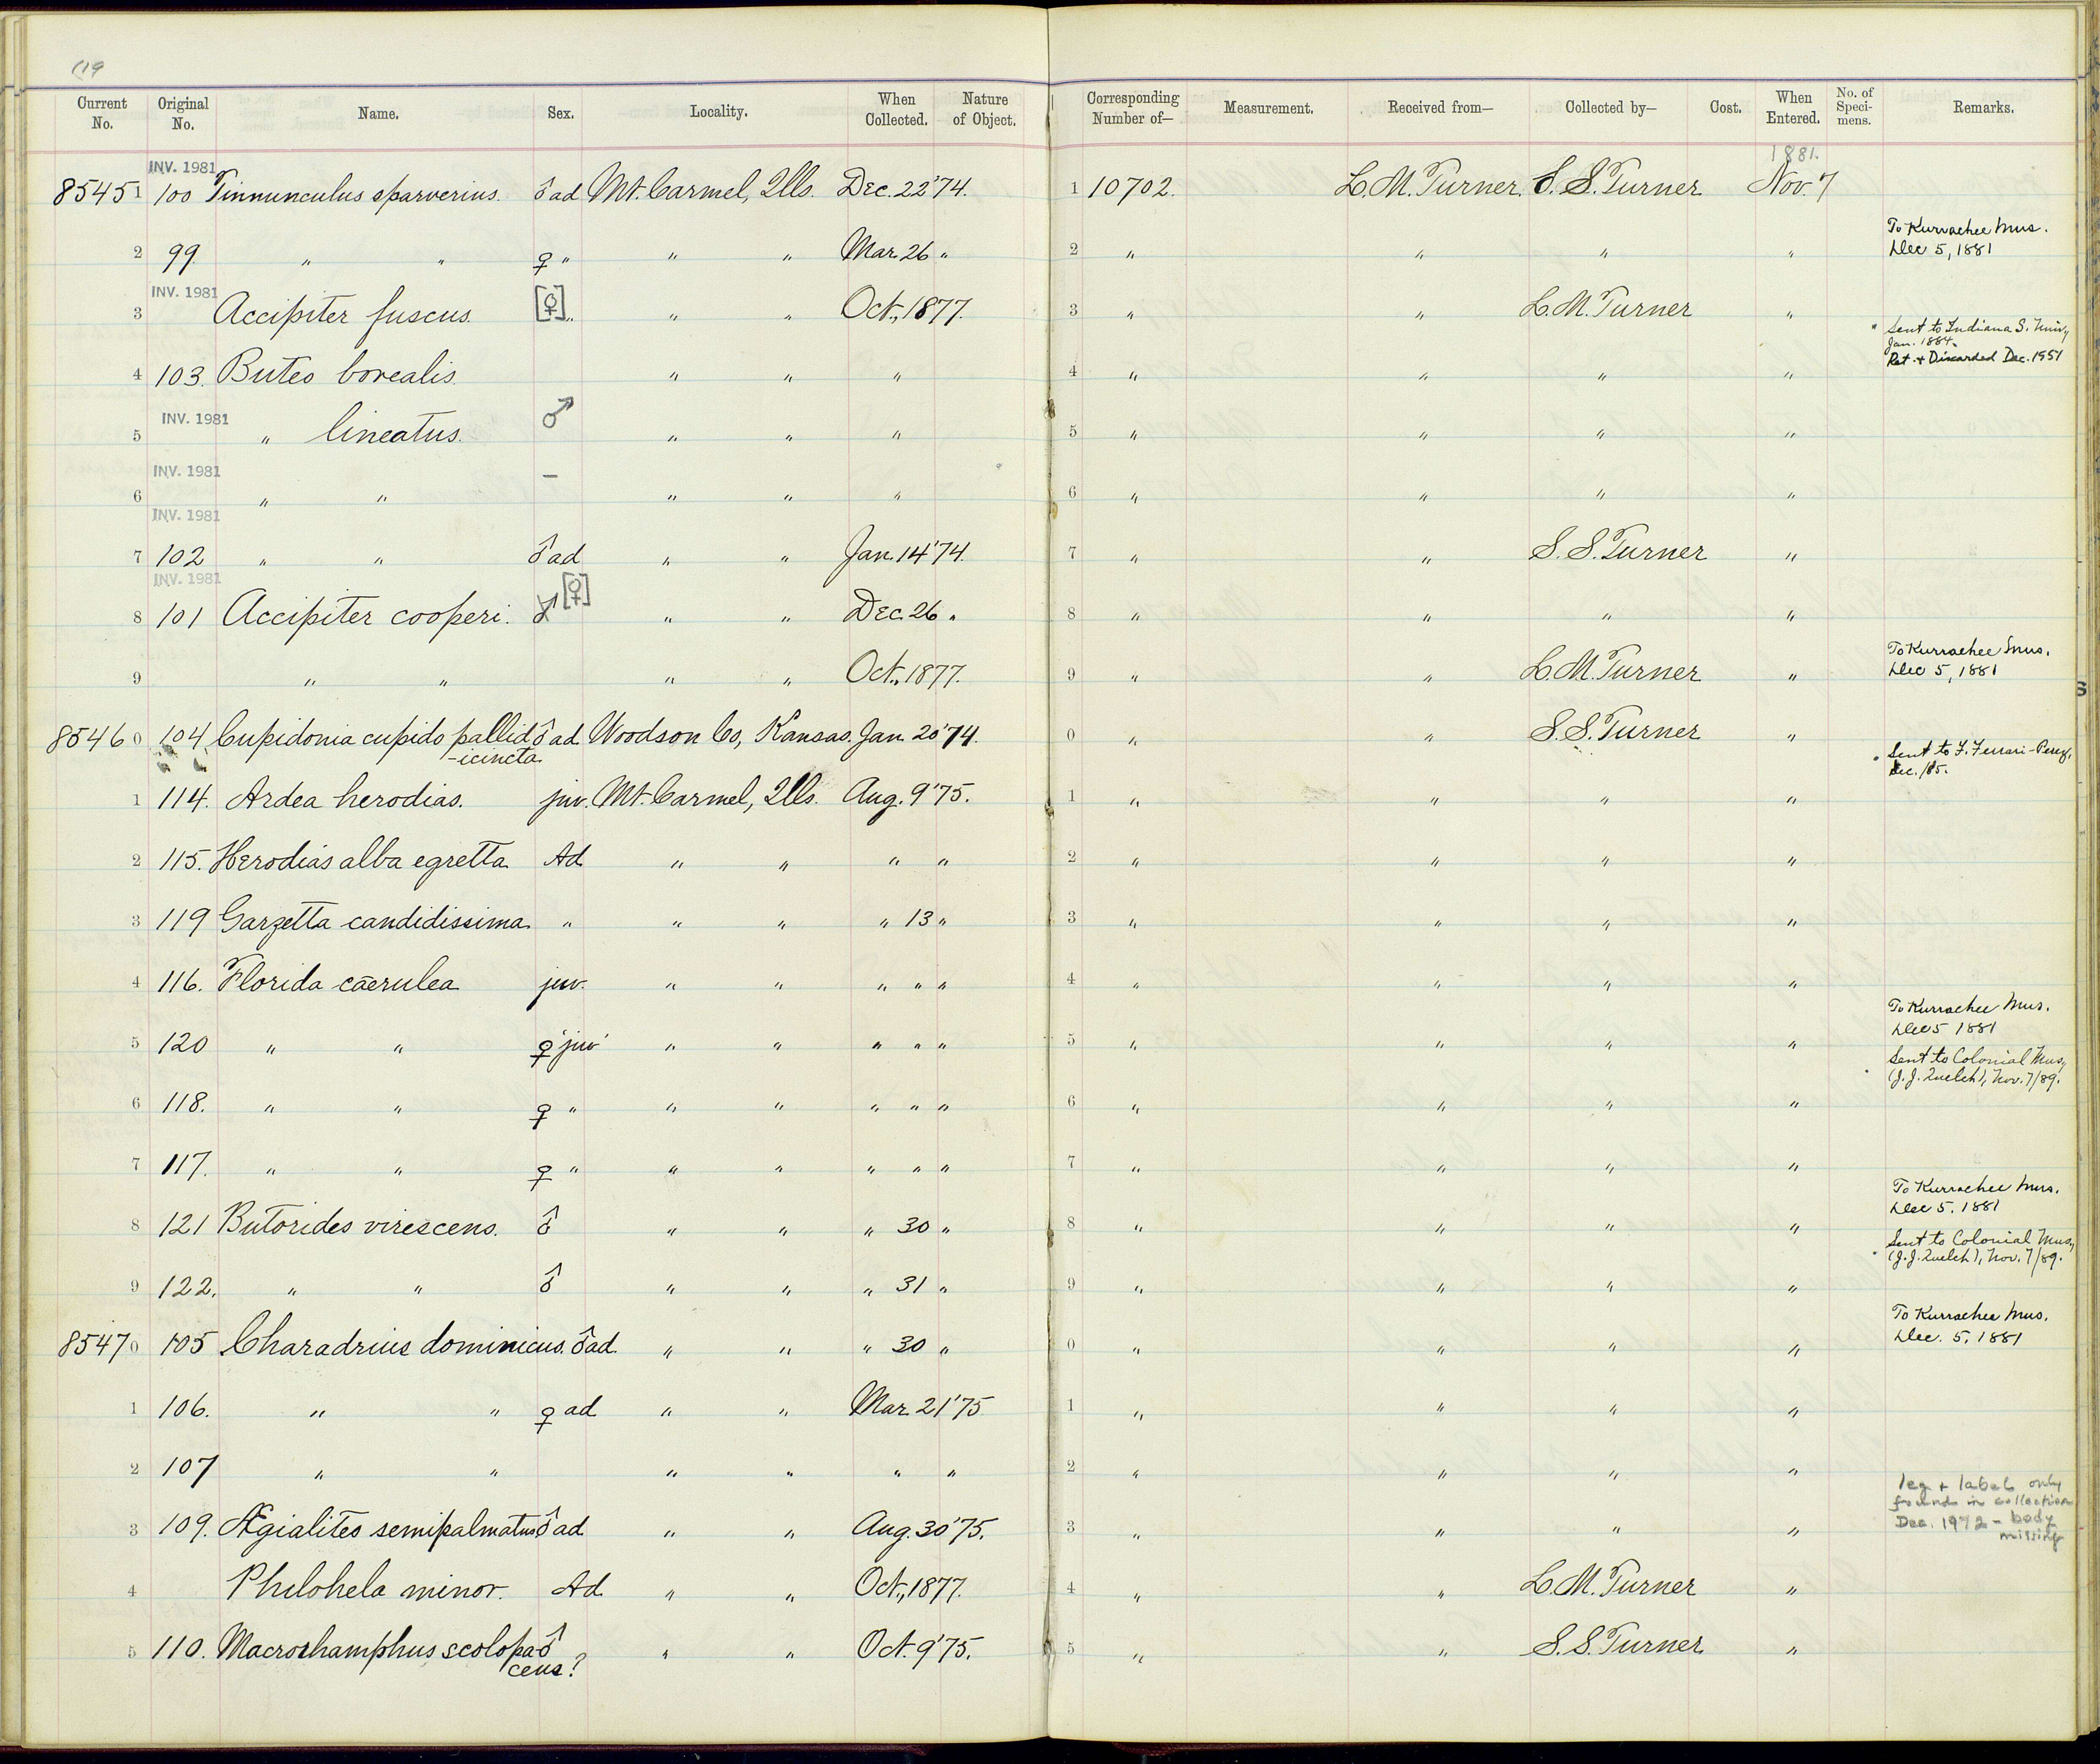 119
Current No. Original No. Name. Sex. Locality. When Collected. Nature of Object. Corresponding Number of— Measurement. Received from— Collected by— Cost. When Entered. No. of Speci-mens. Remarks.
INV. 1981 1881.
85451 100 Tinnunculus sparverius. ♂ ad Mt. Carmel, Ills. Dec. 22 '74. 1 10702. L. M. Turner. S. S. Turner Nov. 7
2 99 " " ♀ " " " Mar. 26 " 2 " " " " To Kurrachee Mus. Dec 5, 1881
INV. 1981
3 Accipiter fuscus. [♀] " " " Oct., 1877. 3 " " L. M. Turner "
4 103. Buteo borealis. " " " 4 " " " " Sent to Indiana S. Univ, Jan. 1884. Ret. + Discarded Dec. 1951
INV. 1981
5 " lineatus. ♂ " " " 5 " " " "
INV. 1981
6 " " — " " " 6 " " " "
INV. 1981
7 102 " " ♂ ad " " Jan. 14 '74. 7 " " S. S. Turner "
INV. 1981
8 101 Accipiter cooperi. ♂ [♀] " " Dec. 26 " 8 " " " "
9 " " " " Oct., 1877. 9 " " L. M. Turner " To Kurrachee Mus. Dec 5, 1881
85460 104 Cupidonia cupido pallid ♂ ad Woodson Co, Kansas. Jan. 20 '74. 0 " " S. S. Turner "
-icincta.
1 114. Ardea herodias. juv. Mt. Carmel, Ills. Aug. 9 '75. 1 " " " " Sent to F. Ferrari-Perez, Dec. /85.
2 115. Herodias alba egretta Ad " " " " 2 " " " "
3 119 Garzetta candidissima. " " " " 13 " 3 " " " "
4 116. Florida cærulea juv. " " " " " 4 " " " "
5 120 " " ♀ juv " " " " " 5 " " " " To Kurrachee Mus. Dec 5 1881
6 118. " " ♀ " " " " " " 6 " " " " Sent to Colonial Mus, (J. J. Quelch), Nov. 7/89.
7 117. " " ♀ " " " " " " 7 " " " "
8 121 Butorides virescens. ♂ " " " 30 " 8 " " " " To Kurrachee Mus. Dec 5. 1881
9 122. " " ♂ " " " 31 " 9 " " " " Sent to Colonial Mus, (J. J. Quelch), Nov. 7/89.
85470 105 Charadrius dominicus. ♂ ad. " " " 30 " 0 " " " " To Kurrachee Mus. Dec. 5. 1881
1 106. " " ♀ ad " " Mar. 21 '75 1 " " " "
2 107 " " " " " " 2 " " " "
3 109. Ægialites semipalmatus ♂ ad " " Aug. 30 '75. 3 " " " " leg + label only found in collection Dec. 1972 - body missing
4 Philohela minor. Ad " " Oct., 1877. 4 " " L. M. Turner "
5 110. Macrorhamphus scolopa- ♂ " " Oct. 9 '75. 5 " " S. S. Turner "
ceus?